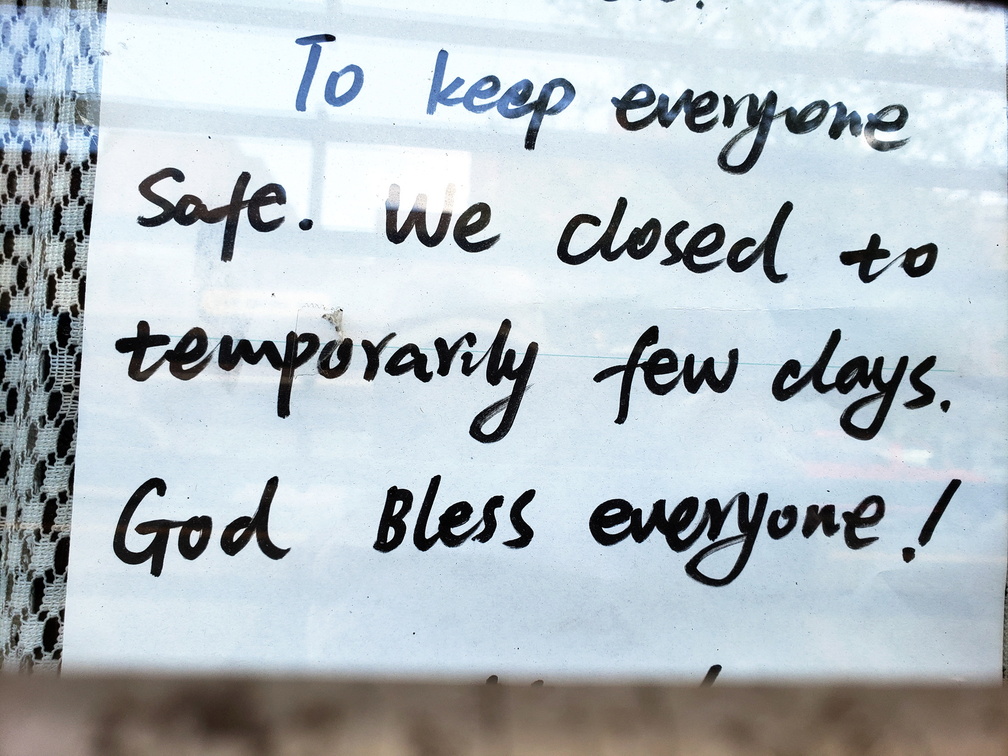 To keep everyone
safe. We closed to
temporarily few days.
God Bless everyone!